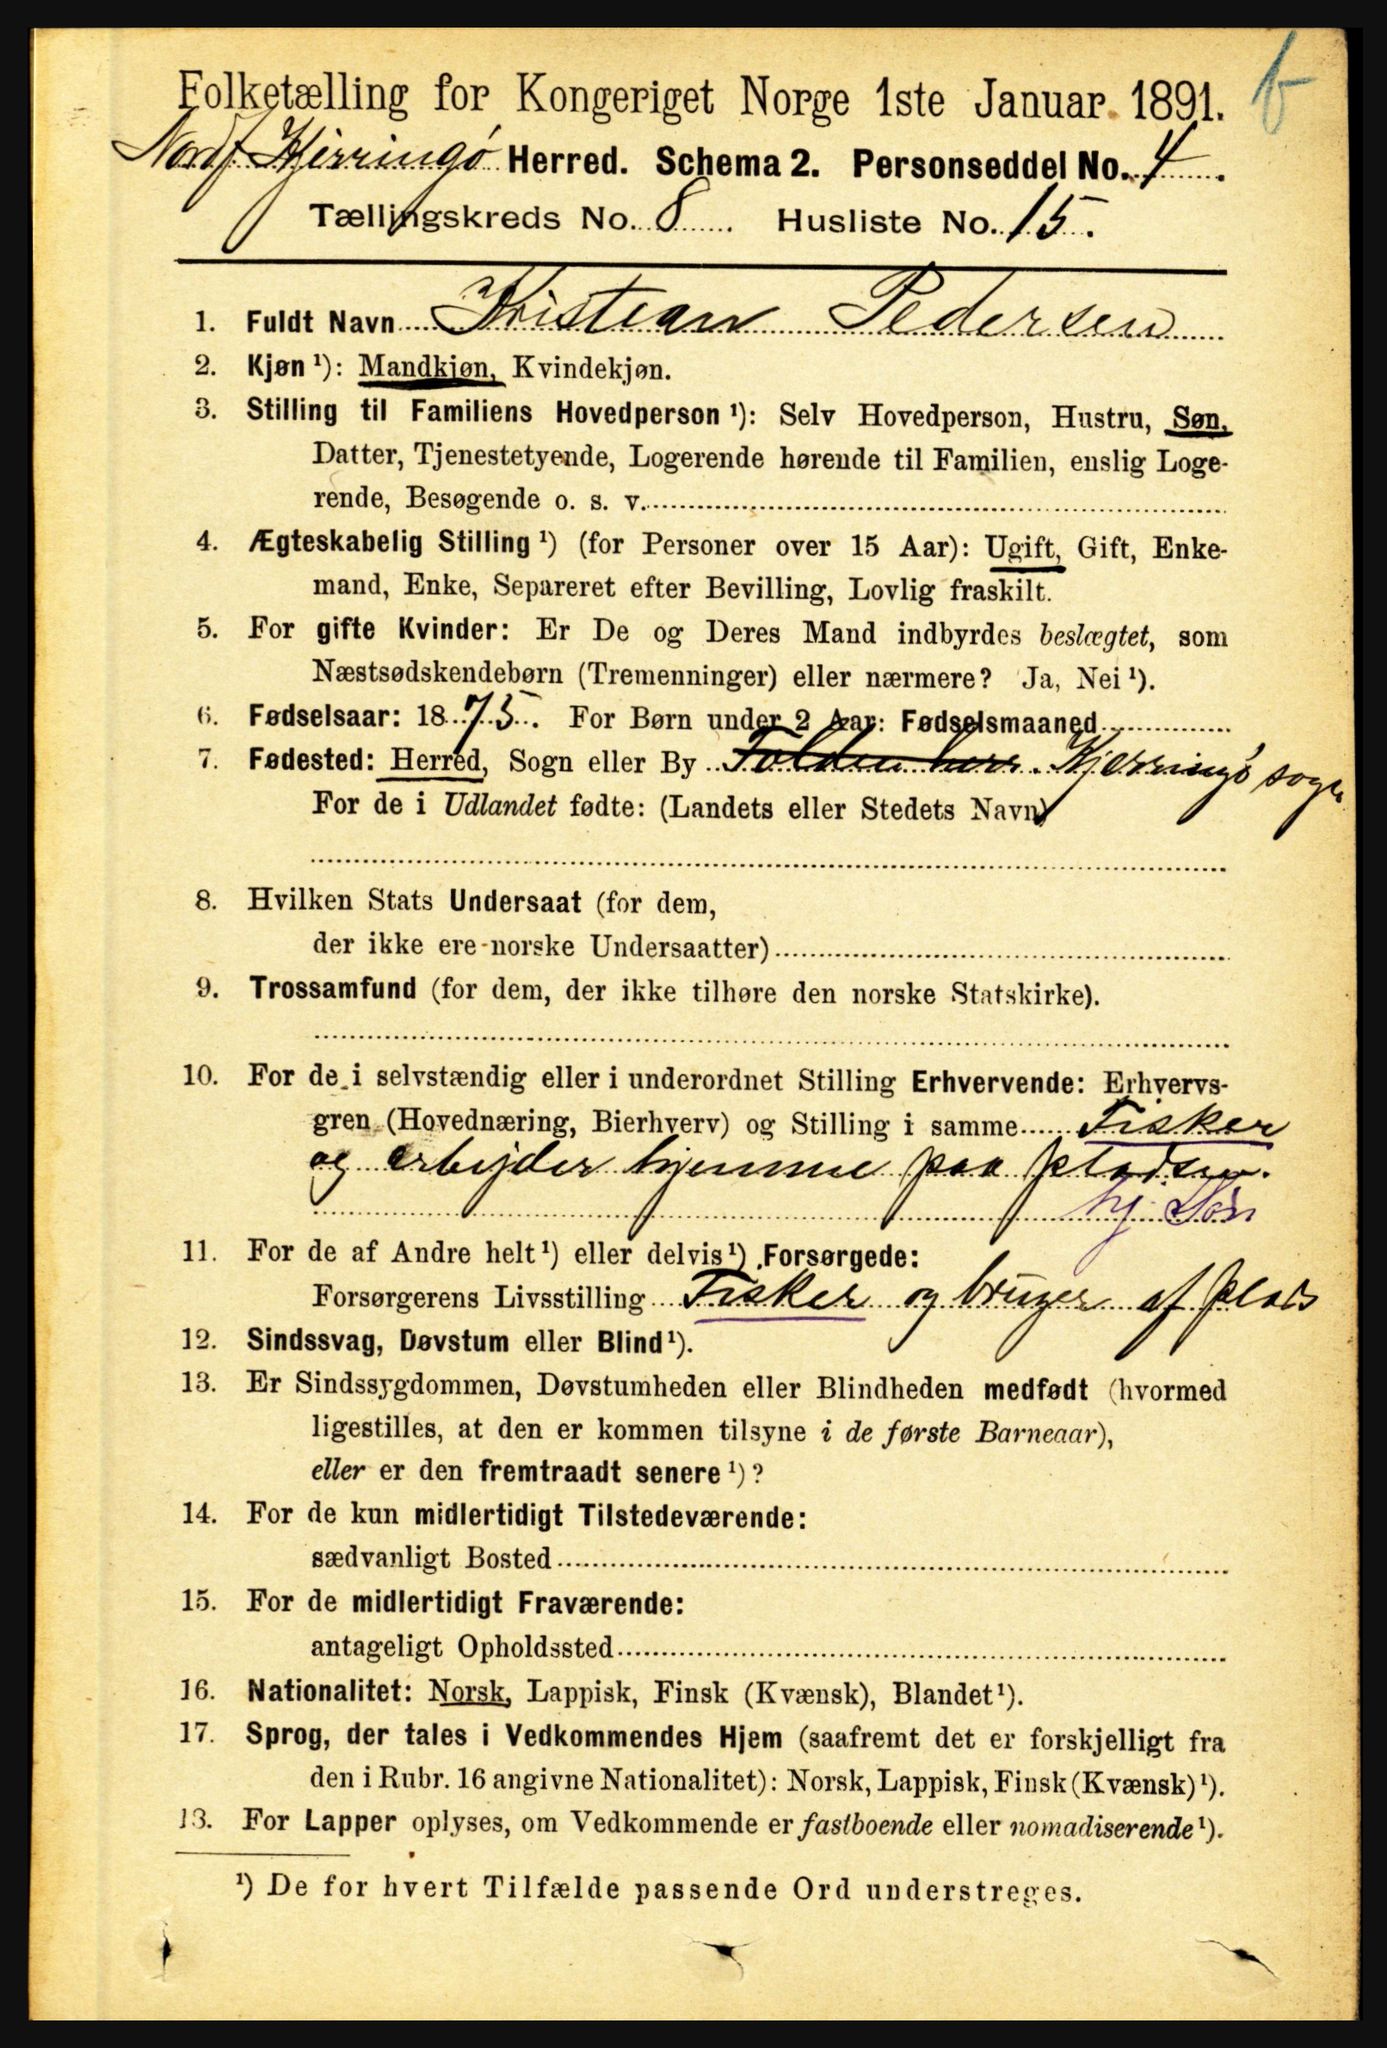 Folketælling for Kongeriget Norge 1ste Januar 1891.
Nordf. Kjerringø Herred. Schema 2. Personseddel No. 4.
Tællingskreds No. 8. Husliste No. 15.
1. Fuldt Navn Kristian Pedersen
2. Kjøn ¹): Mandkjøn, Kvindekjøn.
3. Stilling til Familiens Hovedperson ¹): Selv Hovedperson, Hustru, Søn,
Datter, Tjenestetyende, Logerende hørende til Familien, enslig Loge-
rende, Besøgende o. s. v.
4. Ægteskabelig Stilling ¹) (for Personer over 15 Aar): Ugift, Gift, Enke-
mand, Enke, Separeret efter Bevilling, Lovlig fraskilt.
5. For gifte Kvinder: Er De og Deres Mand indbyrdes beslægtet, som
Næstsødskendebørn (Tremenninger) eller nærmere? Ja, Nei ¹).
6. Fødselsaar: 1875. For Børn under 2 Aar: Fødselsmaaned
7. Fødested: Herred, Sogn eller By Folden herr. Kjerringø sogn
For de i Udlandet fødte: (Landets eller Stedets Navn)
8. Hvilken Stats Undersaat (for dem,
der ikke ere norske Undersaatter)
9. Trossamfund (for dem, der ikke tilhøre den norske Statskirke).
10. For de i selvstændig eller i underordnet Stilling Erhvervende: Erhvervs-
gren (Hovednæring, Bierhverv) og Stilling i samme Fisker
og arbejder hjemme paa pladsen.
hj. Søn
11. For de af Andre helt ¹) eller delvis ¹) Forsørgede:
Forsørgerens Livsstilling Fisker og bruger af plads
12. Sindssvag, Døvstum eller Blind ¹).
13. Er Sindssygdommen, Døvstumheden eller Blindheden medfødt (hvormed
ligestilles, at den er kommen tilsyne i de første Barneaar),
eller er den fremtraadt senere ¹)?
14. For de kun midlertidigt Tilstedeværende:
sædvanligt Bosted
15. For de midlertidigt Fraværende:
antageligt Opholdssted
16. Nationalitet: Norsk, Lappisk, Finsk (Kvænsk), Blandet ¹).
17. Sprog, der tales i Vedkommendes Hjem (saafremt det er forskjelligt fra
den i Rubr. 16 angivne Nationalitet): Norsk, Lappisk, Finsk (Kvænsk) ¹).
13. For Lapper oplyses, om Vedkommende er fastboende eller nomadiserende ¹).
¹) De for hvert Tilfælde passende Ord understreges.